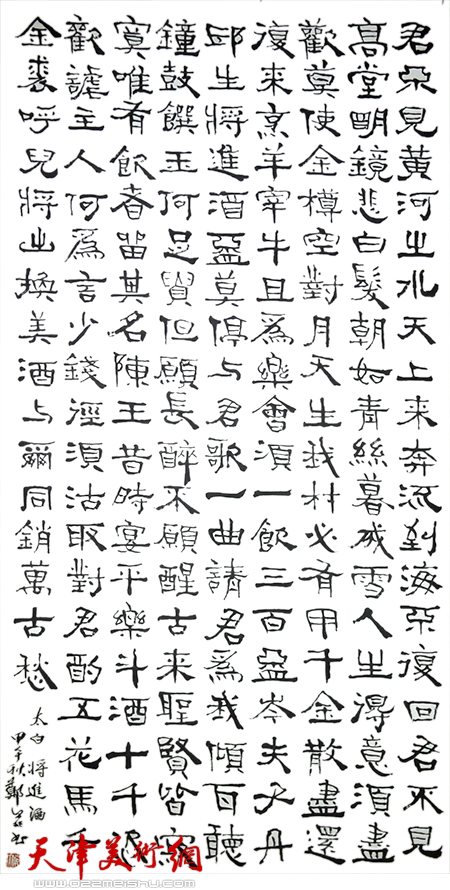 君不見黃河之水天上来奔流到海不復回君不見
高堂明鏡悲白髮朝如青絲暮成雪人生得意須盡
歡莫使金樽空對月天生我材必有用千金散盡還
復来烹羊宰牛且為樂會須一飲三百盃岑夫子丹
邱生將進酒盃莫停与君歌一曲請君為我傾耳聽
鐘鼓饌玉何足貴但願長醉不願醒古来聖賢皆寂
寞唯有飲者留其名陳王昔時宴平樂斗酒十千恣
歡謔主人何為言少錢徑須沽取對君酌五花馬千
金裘呼兒將出換美酒与爾同銷萬古愁
太白將進酒
甲午秋鄭
天津美術網
www.022meishu.com